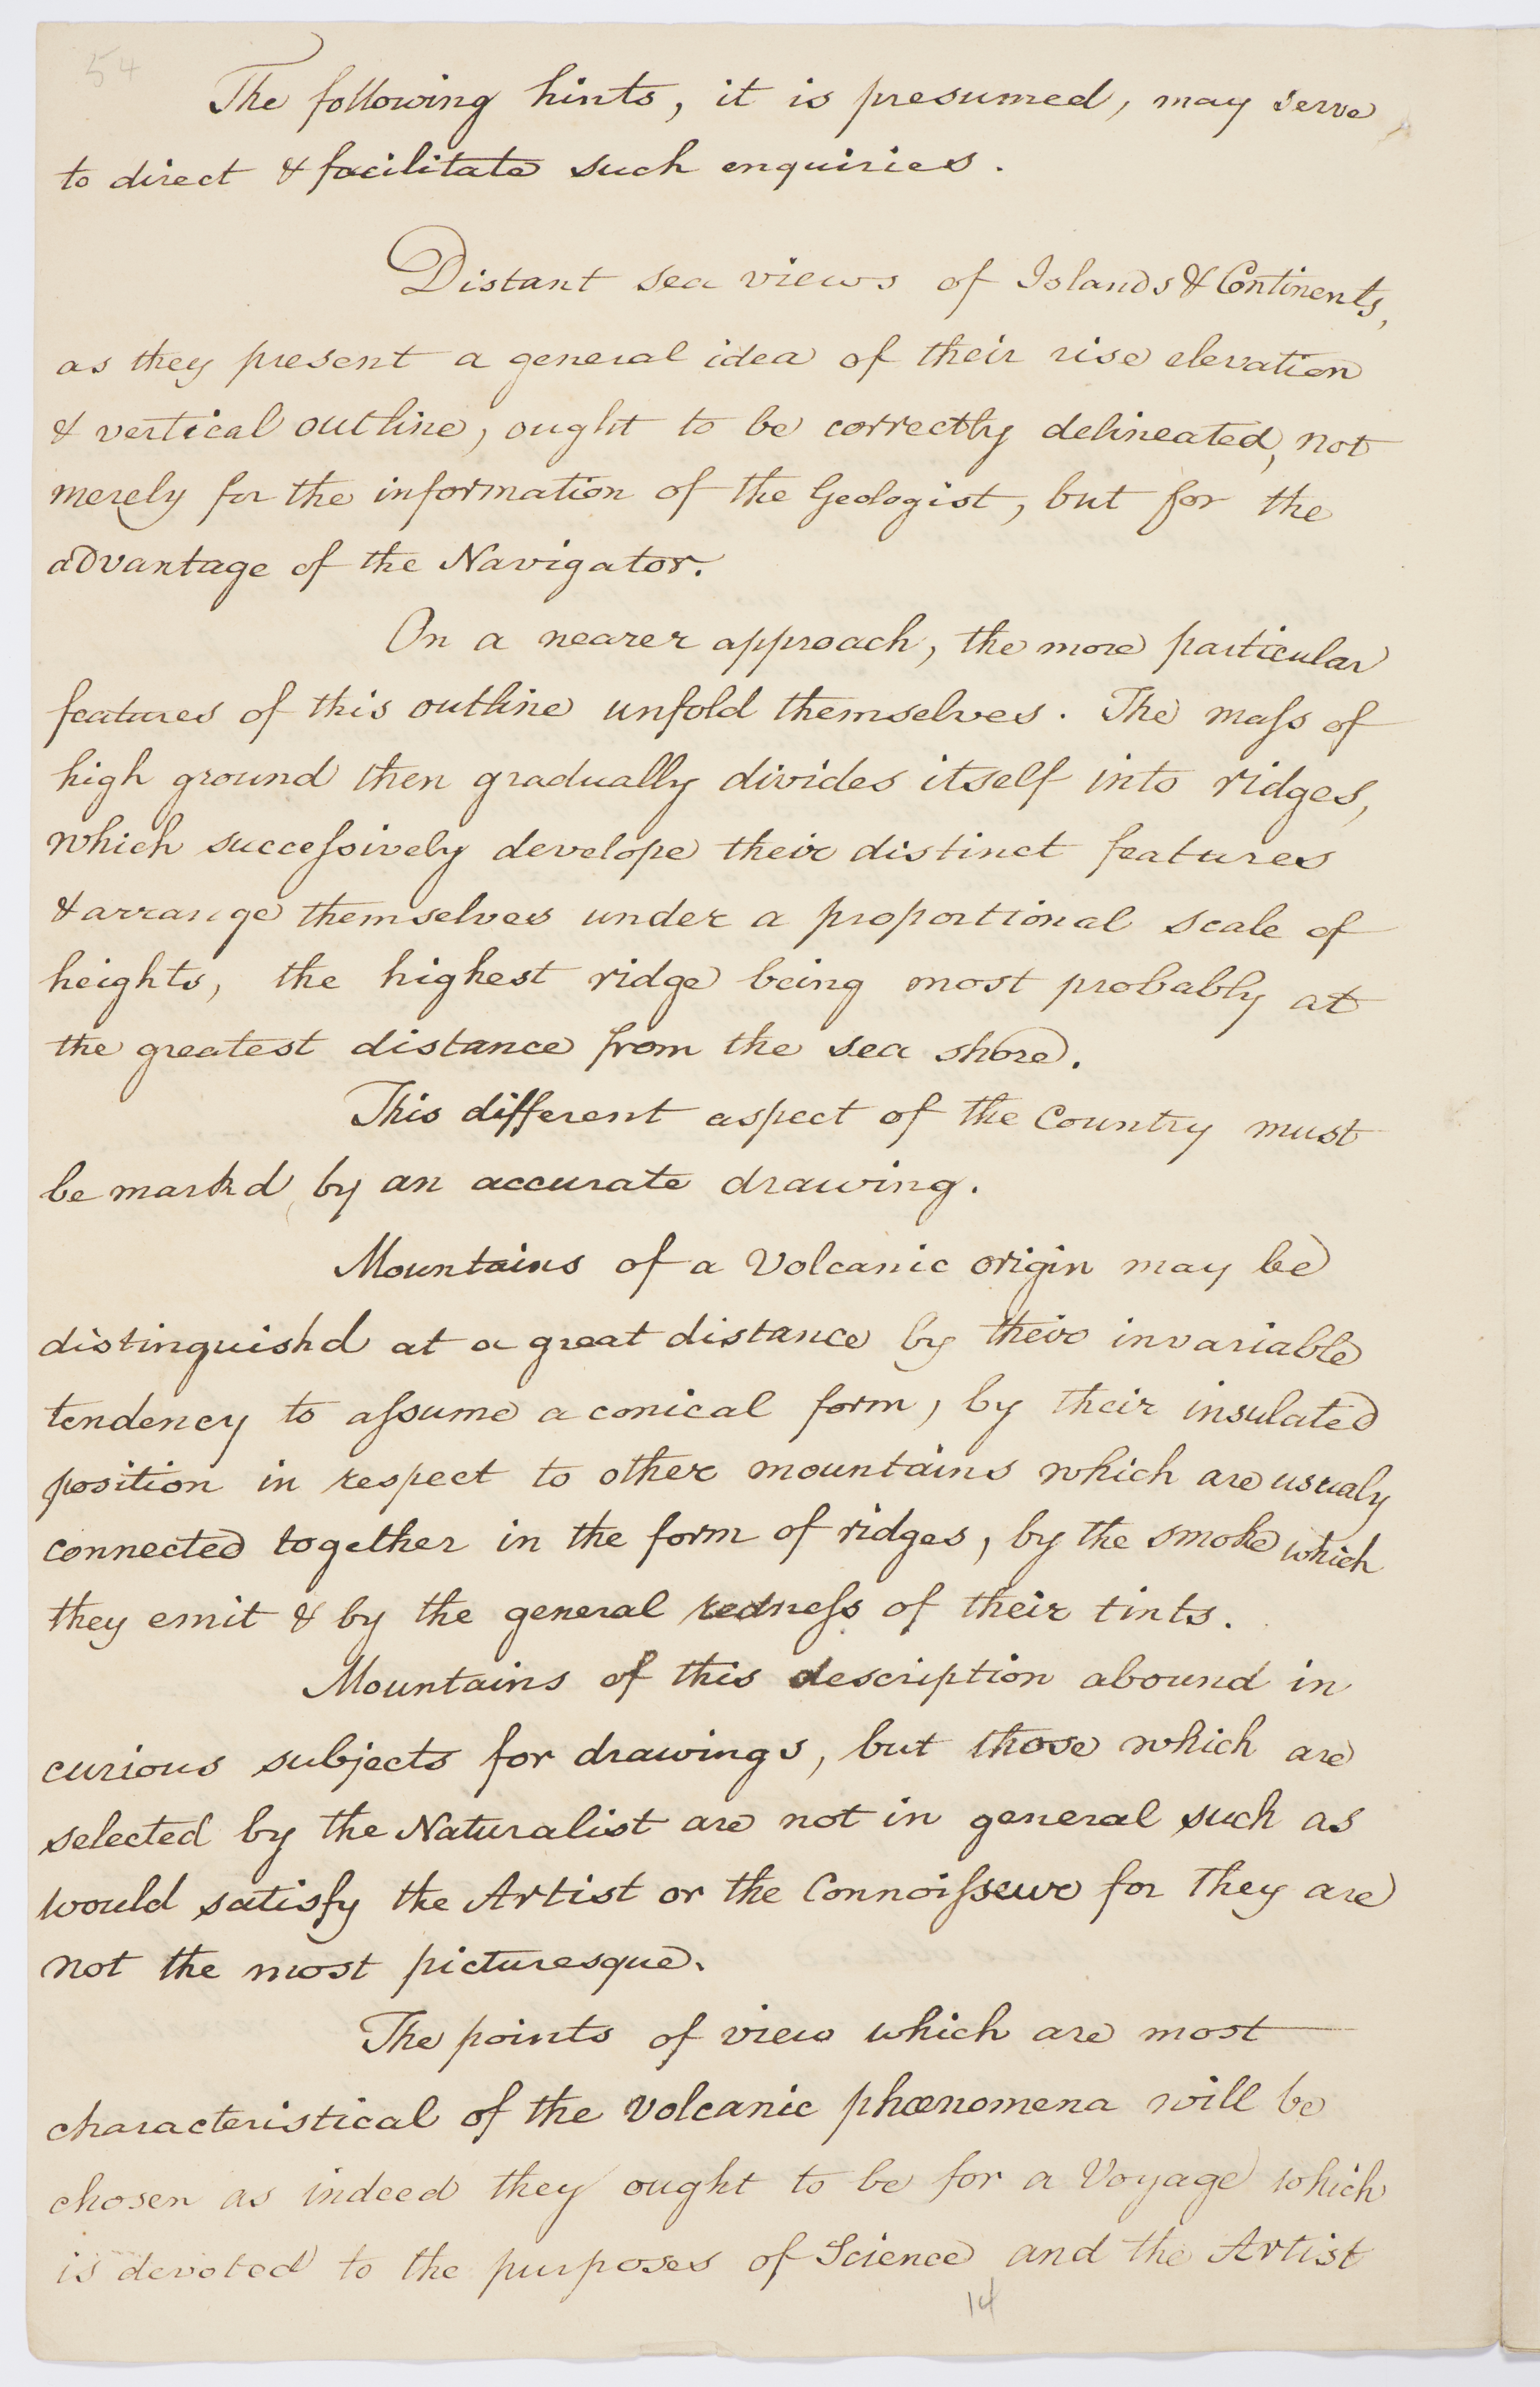 54
The following hints, it is presumed, may serve
to direct & facilitate such enquiries.
Distant sea views of Islands & Continents,
as they present a general idea of their rise elevation
& vertical outline, ought to be correctly delineated, not
merely for the information of the Geologist, but for the
advantage of the Navigator.
On a nearer approach, the more particular
features of this outline unfold themselves. The maſs of
high ground then gradually divides itself into ridges,
which succeſsively develope their distinct features
& arrange themselves under a proportional scale of
heights, the highest ridge being most probably at
the greatest distance from the sea shore.
This different aspect of the Country must
be markd by an accurate drawing.
Mountains of a Volcanic origin may be
distinguishd at a great distance by their invariable
tendency to aſsume a conical form, by their insulated
position in respect to other mountains which are usualy
connected together in the form of ridges, by the smoke which
they emit & by the general redneſs of their tints.
Mountains of this description abound in
curious subjects for drawings, but those which are
selected by the Naturalist are not in general such as
would satisfy the Artist or the Connoiſseur for they are
not the most picturesque.
The points of view which are most
characteristical of the volcanic phœnomena will be
chosen as indeed they ought to be for a Voyage which
is devoted to the purposes of Science and the Artist
14